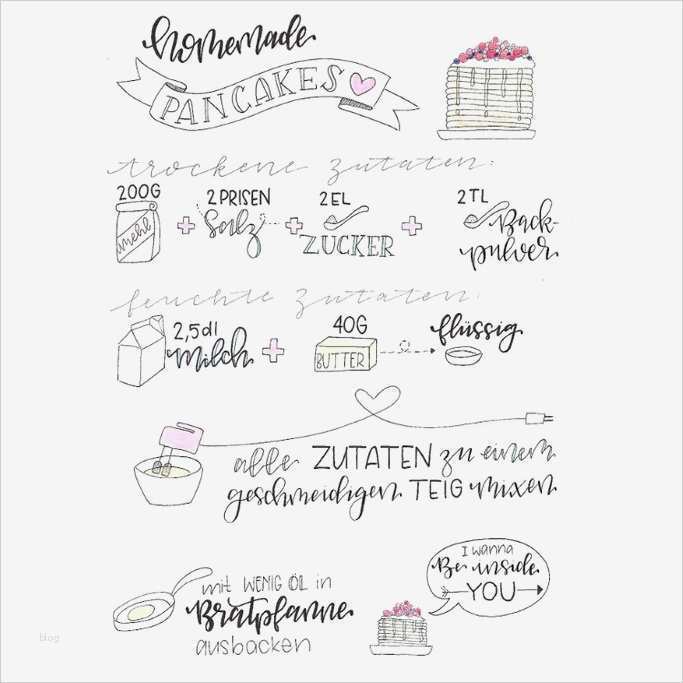 homemade
PANCAKES
trockene Zutaten:
200G
mehl
2 PRISEN
Salz
2 EL
ZUCKER
2 TL
Back-
pulver
feuchte Zutaten:
2,5 dl
Milch
40G
BUTTER
flüssig
alle ZUTATEN zu einem
geschmeidigen TEIG mixen
mit WENIG ÖL in
Bratpfanne
ausbacken
I wanna
Be inside
YOU
blog